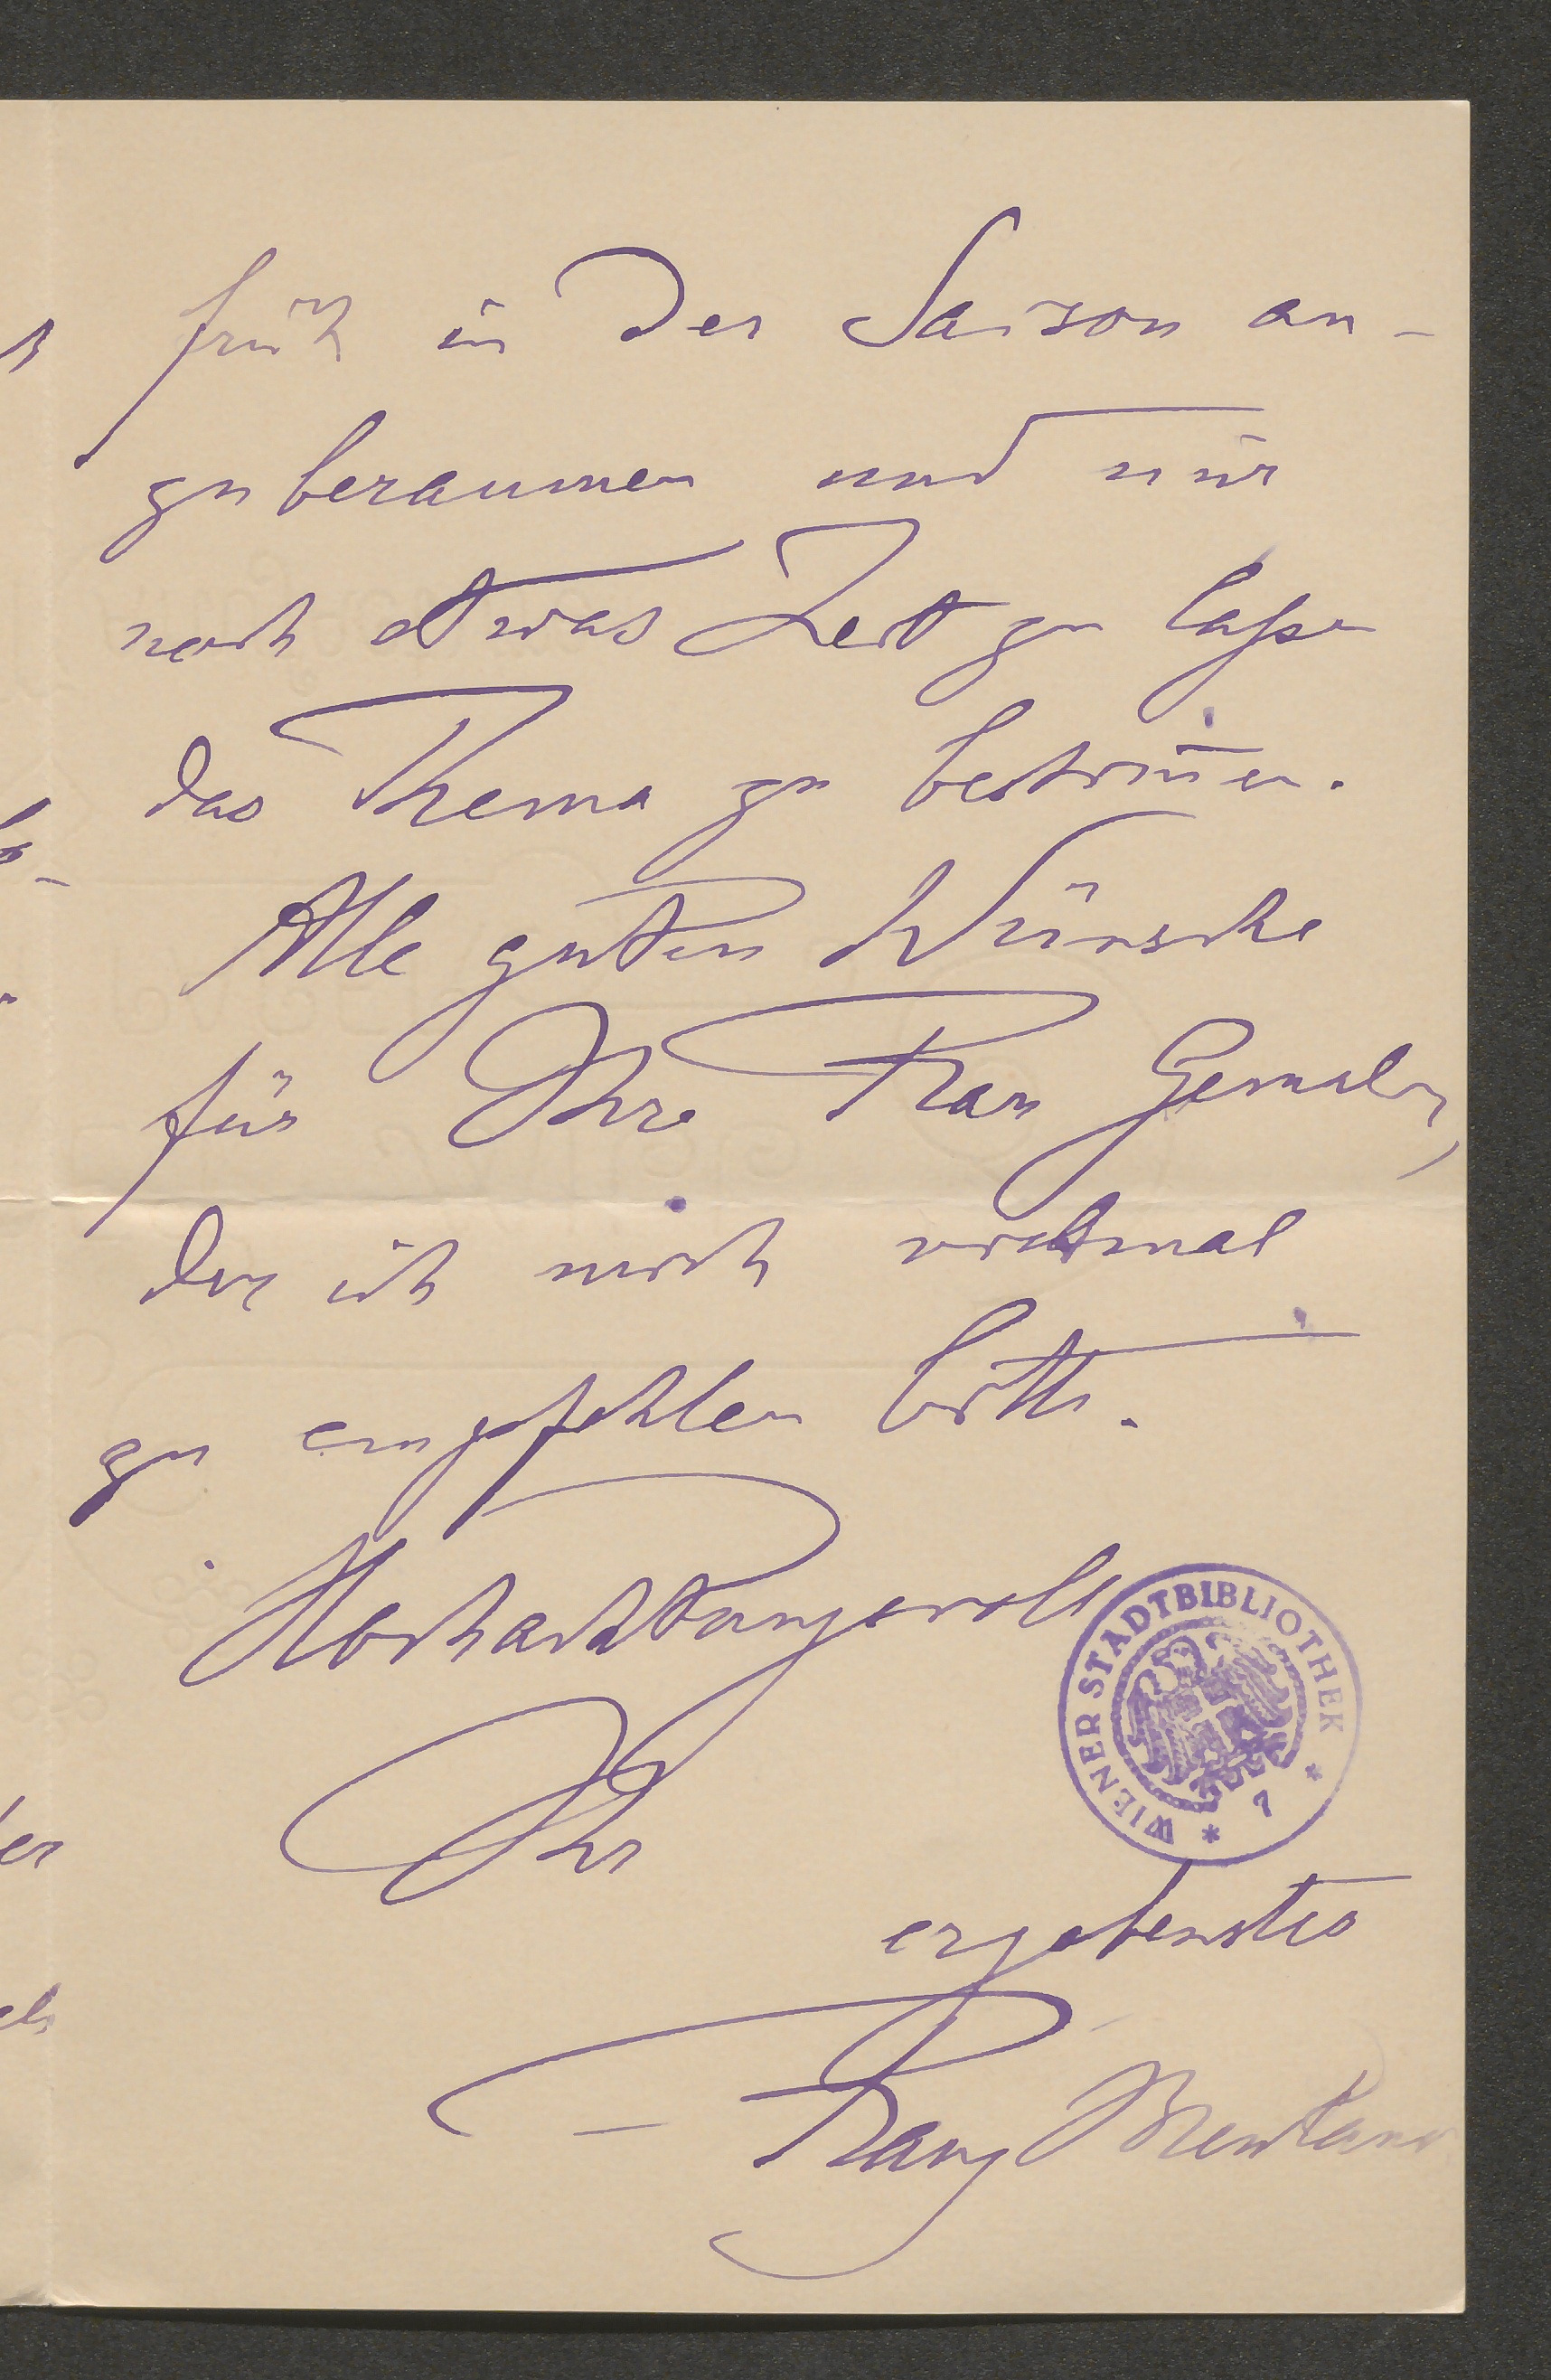 früh in der Saison an-
zuberaumen und mir
noch etwas Zeit zu laßen
das Thema zu bestim̅en.
Alle guten Wünsche
für Ihre Frau Gemalin,
der ich mich vielmal
zu empfehlen bitte.
Hochachtungsvoll
Ihr
WIENER STADTBIBLIOTHEK * 7 *
ergebenster
Franz Brentano